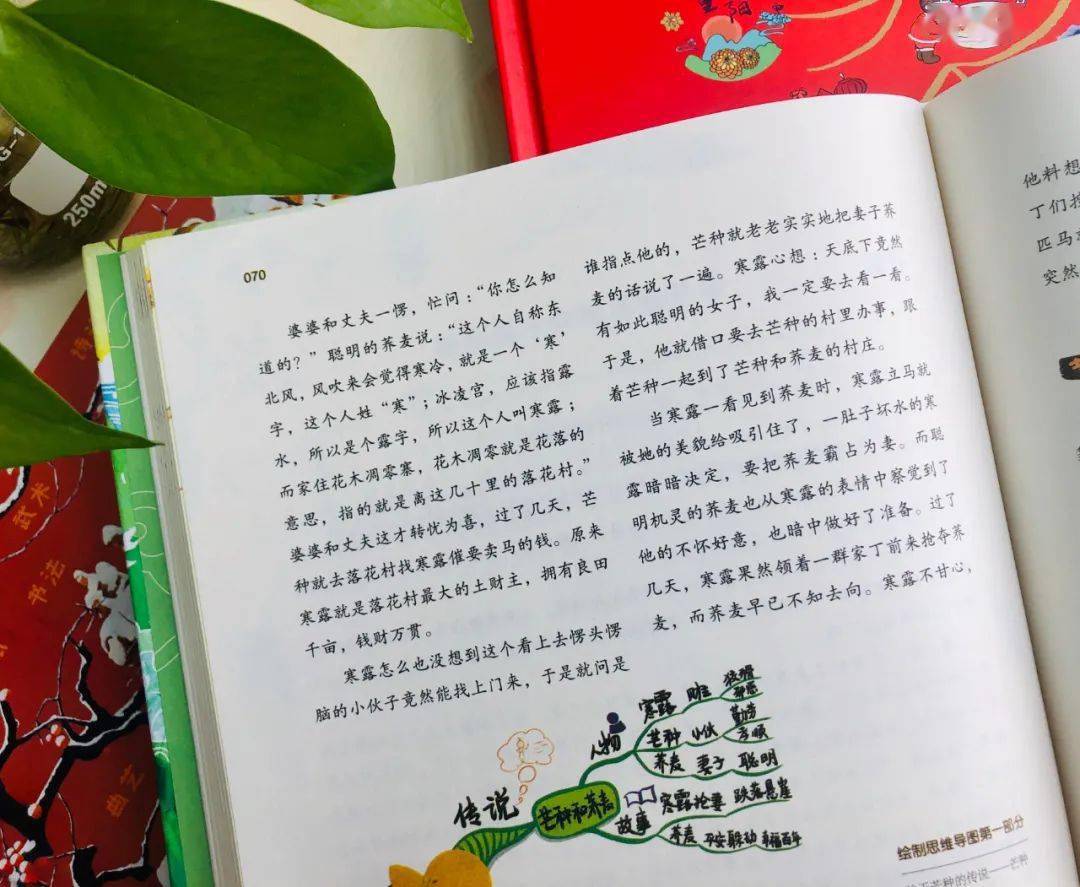 重阳
G-1
250m
070
婆婆和丈夫一愣，忙问：“你怎么知
道的？”聪明的荞麦说：“这个人自称东
北风，风吹来会觉得寒冷，就是一个‘寒’
字，这个人姓“寒”；冰凌宫，应该指露
水，所以是个露字，所以这个人叫寒露；
而家住花木凋零寨，花木凋零就是花落的
意思，指的就是离这几十里的落花村。”
婆婆和丈夫这才转忧为喜，过了几天，芒
种就去落花村找寒露催要卖马的钱。原来
寒露就是落花村最大的土财主，拥有良田
千亩，钱财万贯。
寒露怎么也没想到这个看上去愣头愣
脑的小伙子竟然能找上门来，于是就问是
谁指点他的，芒种就老老实实地把妻子荞
麦的话说了一遍。寒露心想：天底下竟然
有如此聪明的女子，我一定要去看一看。
于是，他就借口要去芒种的村里办事，跟
着芒种一起到了芒种和荞麦的村庄。
当寒露一看见到荞麦时，寒露立马就
被她的美貌给吸引住了，一肚子坏水的寒
露暗暗决定，要把荞麦霸占为妻。而聪
明机灵的荞麦也从寒露的表情中察觉到了
他的不怀好意，也暗中做好了准备。过了
几天，寒露果然领着一群家丁前来抢夺荞
麦，而荞麦早已不知去向。寒露不甘心，
他料想
丁们
匹马
突然
传说
芒种和荞麦
人物
寒露
芒种 小伙 勤劳
孝顺
荞麦 妻子 聪明
故事
寒露抢妻 跌落悬崖
荞麦 平安躲劫 幸福百年
绘制思维导图第一部分
芒种的传说——芒种
武术
书法
曲艺